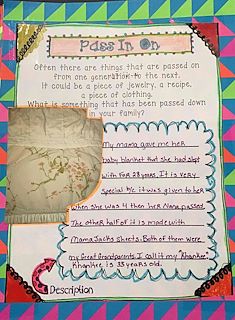 Pass In On
Often there are things that are passed on
from one generation to the next.
It could be a piece of jewelry, a recipe,
a piece of clothing.
What is something that has been passed down
in your family?
My mama gave me her
baby blanket that she had slept
with for 28 years. It is very
special b/c it was given to her
when she was 4 then her Nana passed.
The other half of it is made with
MamaJacks sheets. Both of them were
my great grandparents. I call it my "Khankee".
Khankee is 33 years old.
Description